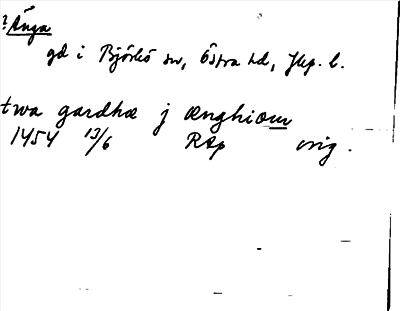 ? Änga
gd i Björkö sn, Östra hd, Jkp. l.
twa gardhæ j ænghiom
1454 13/6 RAp orig.